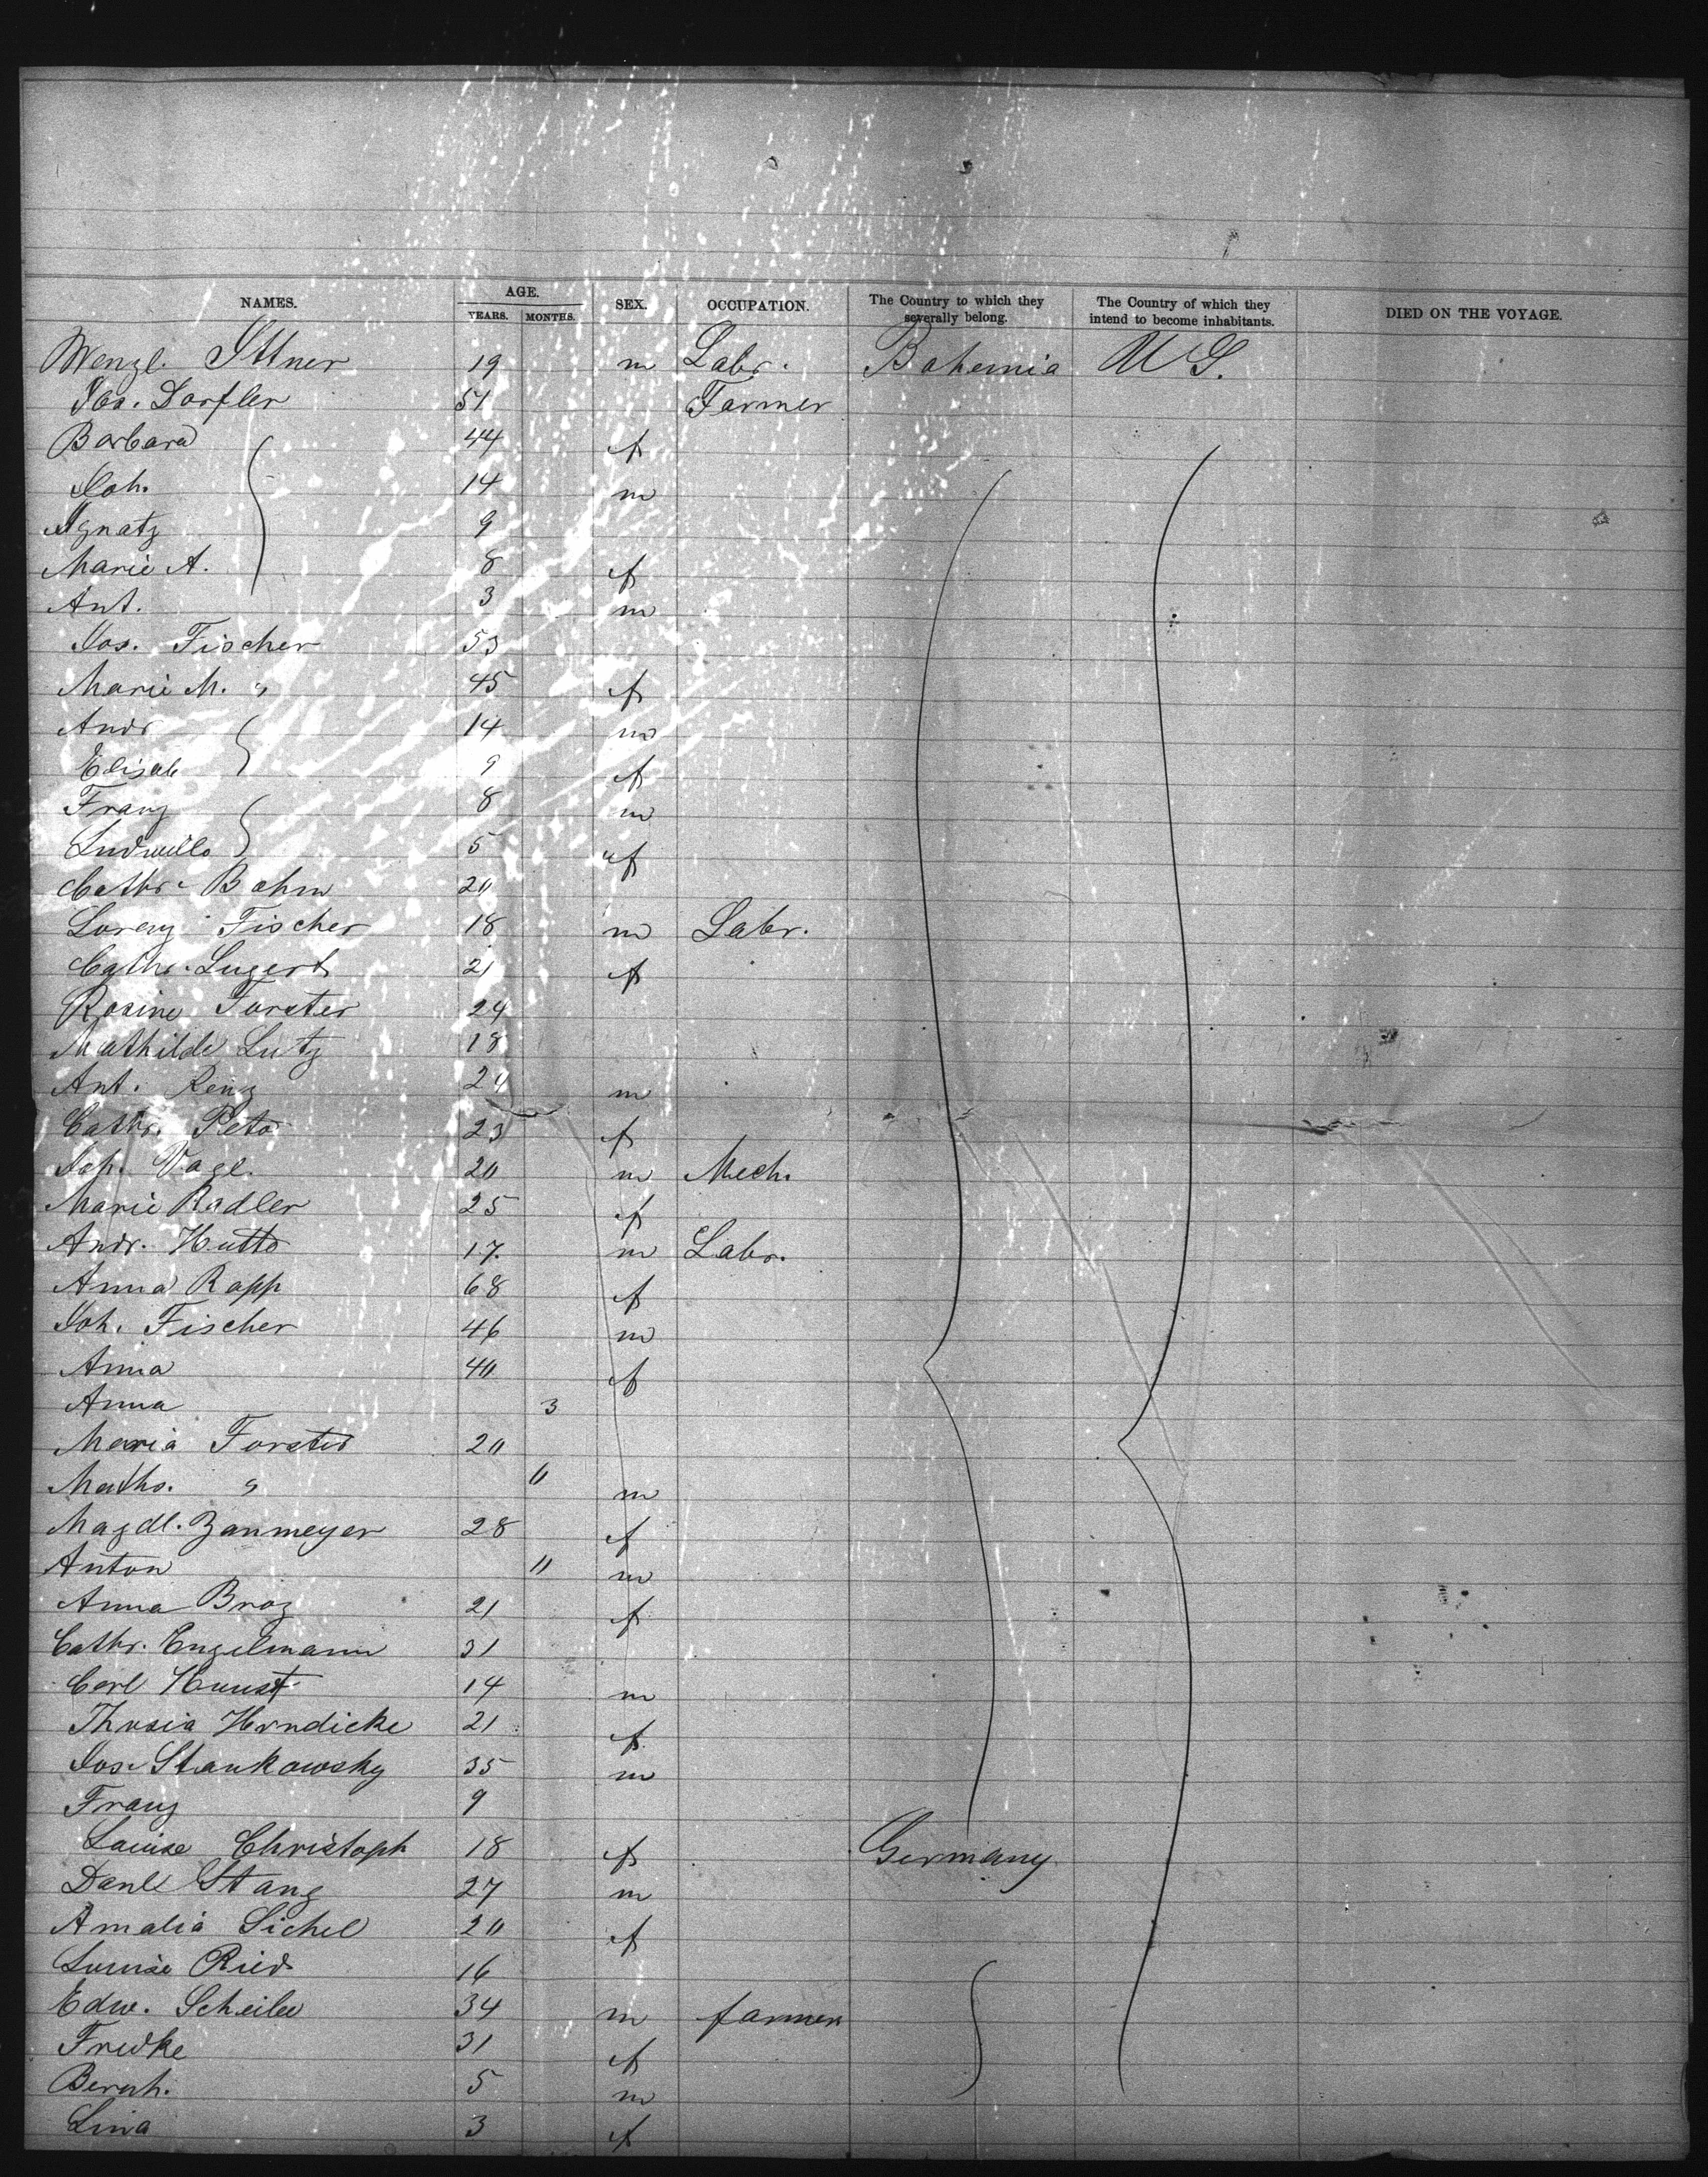 NAMES. AGE. YEARS. MONTHS. SEX. OCCUPATION. The Country to which they severally belong. The Country of which they intend to become inhabitants. DIED ON THE VOYAGE.
Wenzl. Ittner 19 m Labr. Bohemia U S.
Jos. Dorfler 51 Farmer
Barbara 44 f
Joh. 14 m
Ignatz 9
Marie A. 8 f
Ant. 3 m
Jos. Fischer 53
Marie M. " 45 f
Andr 14 m
Elisab 9 f
Franz 8 m
Ludmilla 5 f
Cathr. Bohm 20
Lorenz Fischer 18 m Labr.
Cathr. Lugert 21 f
Rosine Forster 24
Mathilde Lutz 18
Ant. Renz 24 m
Cathr. 23 f
Jos. Vogl. 20 m Mech.
Marie Radler 25 f
Andr. Hutto 17 m Labr.
Anna Rapp 68 f
Joh. Fischer 46 m
Anna 40 f
Anna 3
Maria Forster 20
Maths. " 11 m
Magdl. Zanmeyer 28 f
Anton 11 m
Anna Broz 21 f
Cathr. Engelmann 31
Carl Kunst 14 m
Thusia Hrndicke 21 f
Jos. Stankowsky 35 m
Franz 9
Louise Christoph 18 f Germany
Danl Stang 27 m
Amalia Sichel 20 f
Louise Ried 16
Edw. Scheilee 34 m farmer
Fredke 31 f
Bernh. 5 m
Lina 3 f